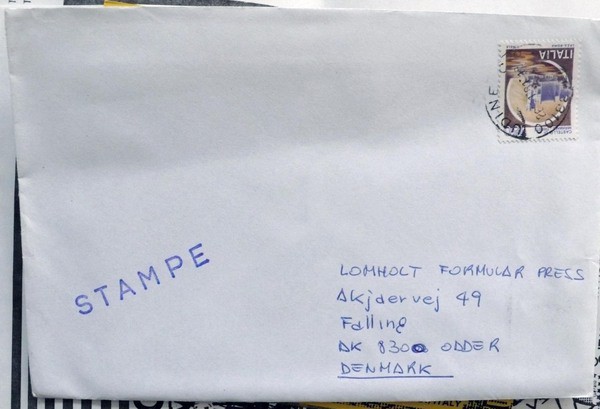 ITALIA
UDINE
33100
STAMPE
LOMHOLT FORMULAR PRESS
Akjaervej 49
Falling
DK 8300 ODDER
DENMARK
ITALY